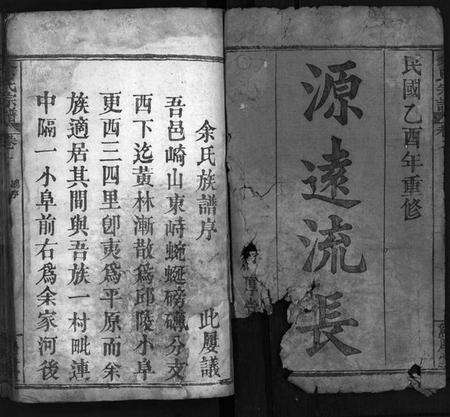 民國乙酉年重修
源遠流長
余氏族譜序
此屢議
吾邑崎山東峙蜿蜒磅礴分支
西下迄黃林漸散為邱陵小阜
更西三四里卽夷為平原而余
族適居其間與吾族一村毗連
中隔一小阜前右為余家河後